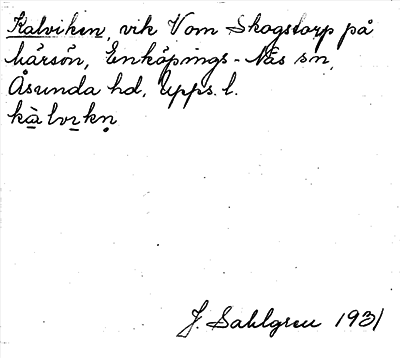 Kalviken, vik V om Skogstorp på
Lårsön, Enköpings-Näs sn,
Åsunda hd, Upps. l.
kàlvɪkn̥
J. Sahlgren 1931